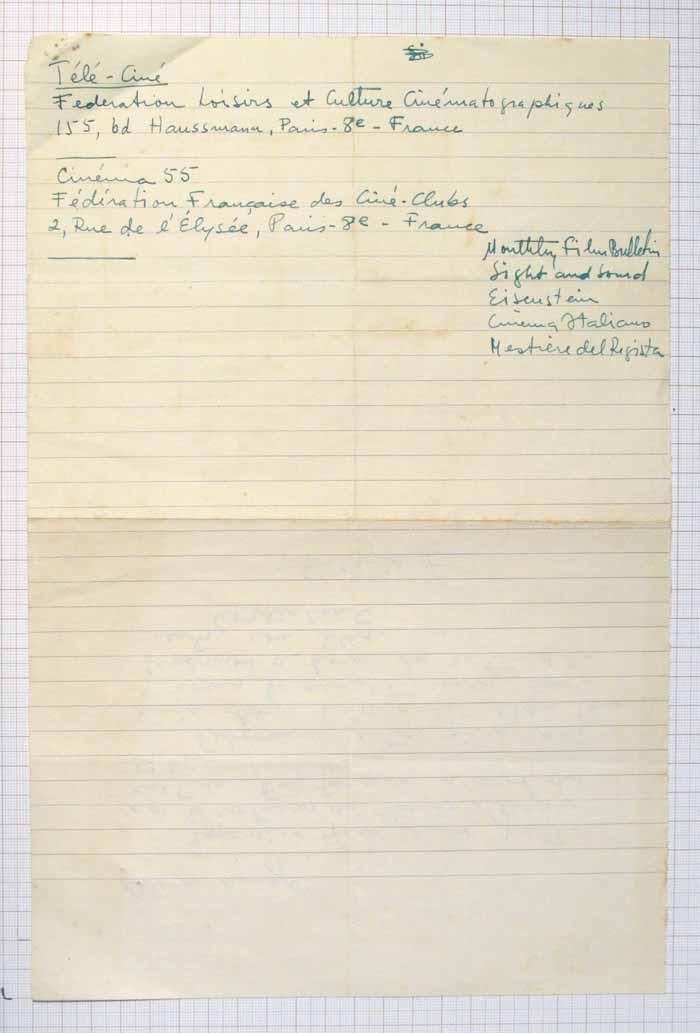 Télé-Ciné
Federation Loisirs et Culture Cinématographiques
155, bd Haussmann, Paris-8e - France
Cinéma 55
Fédération Française des Ciné-Clubs
2, Rue de l'Élysée, Paris-8e - France
Monthly Film Bulletin
Sight and Sound
Eisenstein
Cinema Italiano
Mestiere del Regista